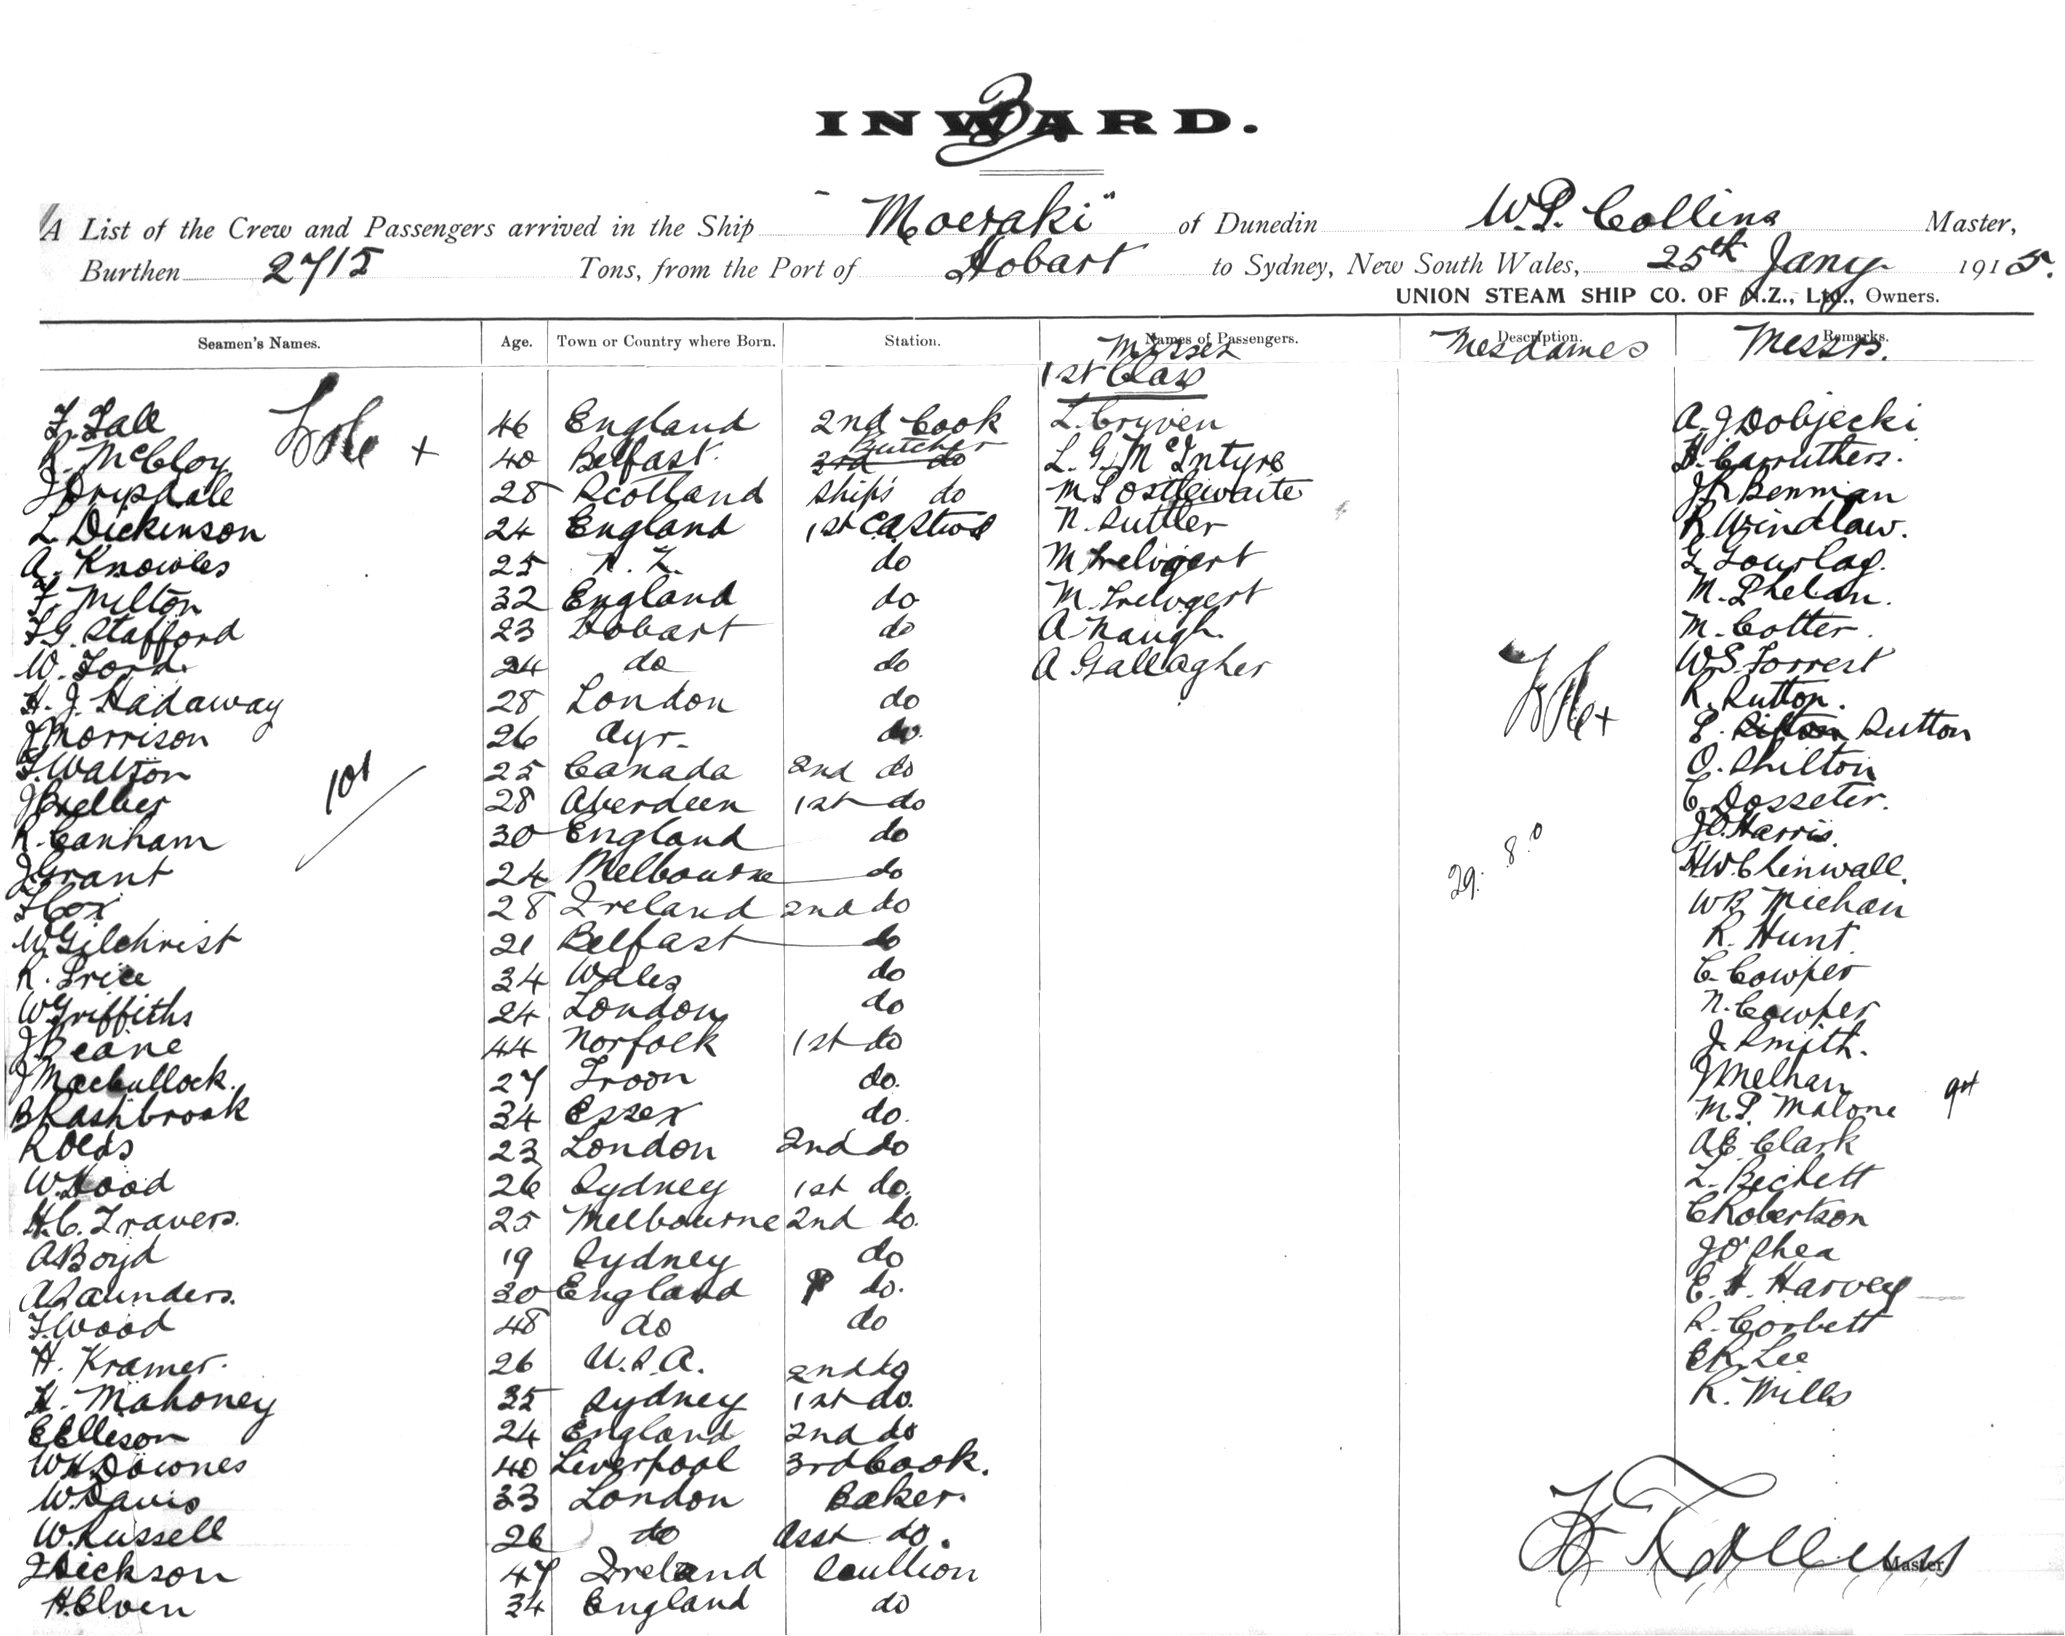 3
INWARD.
A List of the Crew and Passengers arrived in the Ship "Moeraki" of Dunedin W. P. Collins Master,
Burthen 2715 Tons, from the Port of Hobart to Sydney, New South Wales, 25th Jany 1915.
UNION STEAM SHIP CO. OF N.Z., Ltd., Owners.
Seamen's Names. Age. Town or Country where Born. Station. Names of Passengers. Description. Remarks.
Misses Mesdames Messrs.
1st Class
46 England 2nd Cook L. Cryven A. J Dobjecki
Butcher
R. McCloy + 40 Belfast. 3rd do L. G. McIntyre H. Carruthers.
J Drysdale 28 Scotland Ship's do M. Postlewaite J. R. Benman
L. Dickinson 24 England 1st N. Suttler R. Windlaw.
A. Knowles 25 N. Z. do M G. Gourlay.
F. Milton 32 England do M. M. Phelan.
F. G. Stafford 23 Hobart do A. Naugh. M. Cotter.
W. Ford. 24 do do A Gallagher W. S. Forrest
H. J. Hadaway 28 London do R. Sutton.
J Morrison 26 Ayr. do. E. Sutton
F. Walton 25 Canada 2nd do O. Shilton
101 28 Aberdeen 1st do C. Dosseter.
R. Canham 30 England do J. O. Harris.
J Grant 24 Melbourne do 29. 8. 0 H W. Chinwall.
F Cox 28 Ireland 2nd do W B Miehan
W Gilchrist 21 Belfast do R. Hunt.
R. Price 34 Wales do C. Cowper
W Griffiths 24 London do N. Cowper
J Deane 44 Norfolk 1st do J. Smith.
J MacCullock. 27 Troon do.
B Rashbrook 34 Essex do. M. P. Malone
R Olds 23 London 2nd do A E Clark
W. Hood 26 Sydney 1st do. L. Beckett
H. C. Travers. 25 Melbourne 2nd do. C Robertson
A Boyd 19 Sydney do J O'Shea
A Saunders. 30 England do. E. H. Harvey
F. Wood 48 do do R. Corbett
H. Kramer. 26 U. S. A. 2nd do E R. Lee
H. Mahoney 35 Sydney 1st do. R. Mills
E Elleson 24 England 2nd do
W H. Downes 40 Liverpool 3rd Cook.
W. Davis 33 London Baker.
W. Russell 26 do Asst do.
J Dickson 47 Ireland Scullion Master
H. Elven 34 England do